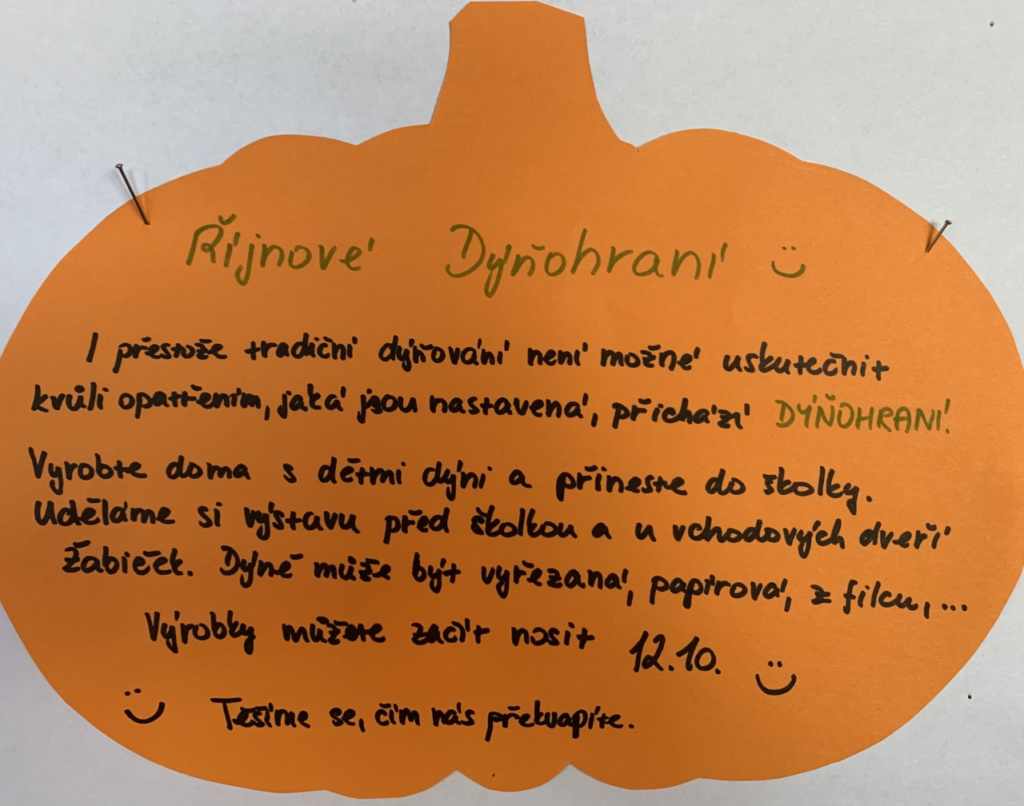 Říjnové Dýňohraní
I přestože tradiční dýňování není možné uskutečnit
kvůli opatřením, jaká jsou nastavená, přichází DÝŇOHRANÍ.
Vyrobte doma s dětmi dýni a přineste do školky.
Uděláme si výstavu před školkou a u vchodových dveří
Žabiček. Dýně může být vyřezaná, papírová, z filcu, ...
Výrobky můžete začít nosit 12.10.
Těšíme se, čím nás překvapíte.